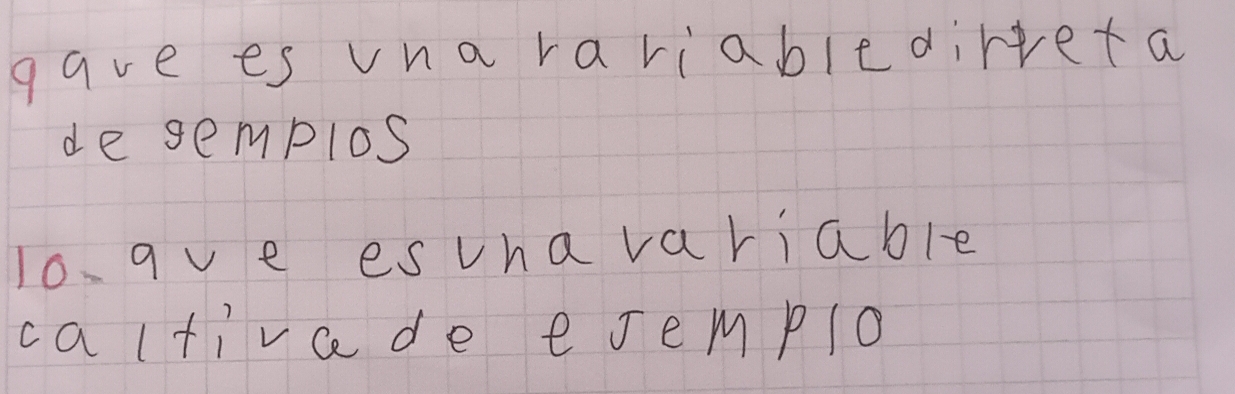 9 que es una rariable dirreta
de gemplos
10. que es una variable
caltiva de eJemplo